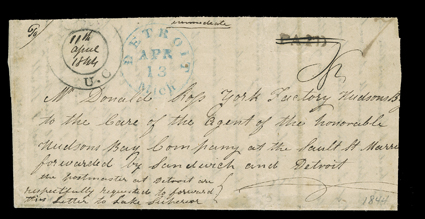 immediate
11th
april
1844
U.C
DETROIT
APR
13
MICH
PAID
Mr Donald Ross York Factory Hudsons B
to the Care of the Agent of the honorable
Hudsons Bay Company at the Sault St Marrie
forwarded by Sandwich and Detroit
the postmaster at Detroit are
respectfully requested to forward
this Letter to Lake Superior
1844